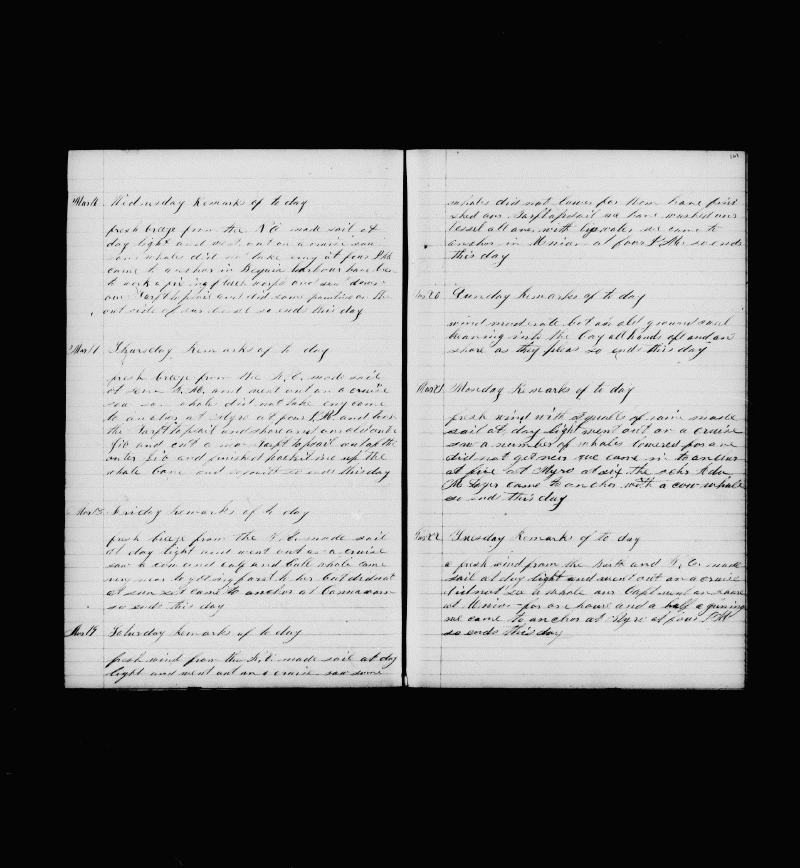 Mar 16 Wednesday Remarks of to day
fresh breeze from the N E made sail at
day light and went out on a cruise saw
some whales did not take eny at four P.M.
came to anchor in Bequia harbour have ben
to work a
our and did some painting on the
out side of our vessel so ends this day
Mar 17 Thursday Remarks of to day
fresh breeze from the N. E. made sail
at A.M. and went out on a cruise
saw som whale did not take eny came
to anchor at Myro at four P.M. and took
the topsail and an old
jib and cut a topsail out of the
outer jib and finished up the
whale bone and so ends this day
Mar 18 Friday Remarks of to day
fresh breeze from the N. E. made sail
at day light and went out on a cruise
saw a cow and calf and bull whale came
very near to geting fast to her but did not
at sun set came to anchor at
so ends this day
Mar 19 Saturday Remarks of to day
fresh wind from the N. E. made sail at day
light and went out on a cruise saw some
161
whales did not lower for them have fin
shed our topsail we have washed our
vessel all over with we came to
anchor in at four P.M. so ends
this day
Mar 20 Sunday Remarks of to day
wind moderate but an old ground swell
heaving into the bay all hands off and on
shore as they pleas so ends this day
Mar 21 Monday Remarks of to day
fresh wind with squalls of rain made
sail at day light went out on a cruise
saw a number of whales lowered for one
did not get near we came in to anchor
at five at Myro at six the schr
came to anchor with a cow whale
so ends this day
Mar 22 Tuesday Remarks of to day
a fresh wind from the North and N. E. made
sail at day light and went out on a cruise
did not see a whale our Capt went on shore
at for one hour and a half a
we came to anchor at Myro at four P.M.
so ends this day